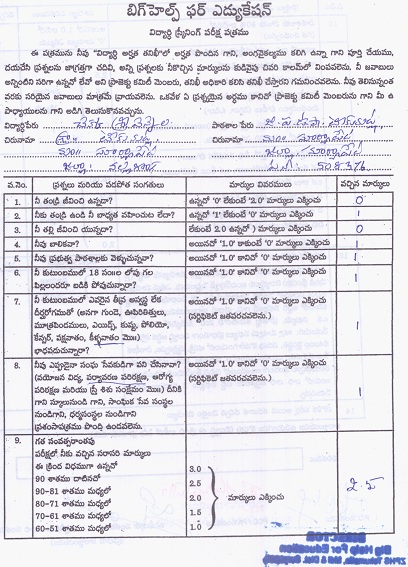 బిగ్‌హెల్ప్ ఫర్ ఎడ్యుకేషన్
విద్యార్థి స్క్రీనింగ్ పరీక్ష పత్రము
ఈ పత్రమును నీవు "విద్యార్థి అర్హత తనిఖీ"లో అర్హత పొందిన గాని, అంగవైకల్యము కలిగి ఉన్నా గాని పూర్తి చేయుము,
దయచేసి ప్రశ్నలను జాగ్రత్తగా చదివి, అన్ని ప్రశ్నలకు నీకొచ్చిన మార్కులను కుడివైపు చివర కాలమ్‌లో నింపవలెను. నీ జవాబులు
అన్నింటిని సరిగా ఉన్నదో లేదో అని ప్రాజెక్టు కమిటీ మెంబరు, తనిఖీ అధికారి కలిసి తనిఖీ చేస్తారని గమనించవలెను. నీవు తెలిసినన్నంత
వరకు సరియైన జవాబులు మాత్రమే వ్రాయవలెను. ఒకవేళ ఏ ప్రశ్నయైన అర్థము కానిచో ప్రాజెక్ట్ కమిటీ మెంబరును గాని మీ ఉ
పాధ్యాయులను గాని అడిగి తెలుసుకొనవచ్చును.
విద్యార్థిపేరు పాఠశాల పేరు
చిరునామా చిరునామా
508376
వ.నెం. ప్రశ్నలు మరియు పదపోత సంగతులు మార్కుల వివరములు వచ్చిన మార్కులు
1. నీ తండ్రి జీవించి ఉన్నడా? ఉన్నచో '0' లేకుంటే '2.0' మార్కులు ఎక్కించు 0
2. నీకు తండ్రి ఉండి నీ బాధ్యత వహించుట లేదా? ఉన్నచో '1' లేకుంటే '0' మార్కులు ఎక్కించు 1
3. నీ తల్లి జీవించి యున్నదా? లేకుంటే 2.0 ఉన్నచో ) మార్కులు ఎక్కించు 0
4. నీవు బాలికవా? అయినచో '1.0' కాకుంటే '0' మార్కులు ఎక్కించు 1
5. నీవు ప్రభుత్వ పాఠశాలకు వెళ్ళుచున్నవా? అయినచో '1.0' కానిచో '0' మార్కులు ఎక్కించు 1
6. నీ కుటుంబములో 18 సం॥ల లోపు గల అయినచో '1.0' కానిచో '0' మార్కులు ఎక్కించు 1
పిల్లలందరూ బడికి పోవుచున్నారా?
7. నీ కుటుంబములో ఎవరైన తీవ్ర అస్వస్థ లేక అయినచో '1.0' కానిచో '0' మార్కులు ఎక్కించు 1
దీర్ఘరోగముతో (అనగా గుండె, ఊపిరితిత్తులు, (సర్టిఫికెట్ జతపరచవలెను.)
మూత్రపిండములు, ఎయిడ్స్, కుష్టు, పోలియో,
కేన్సర్, పక్షవాతం, కీళ్ళవాతం మొ॥)
బాధపడుచున్నారా?
8. నీవు ఎప్పుడైనా సంఘ సేవకుడిగా పని చేసినావా? అయినచో '1.0' కానిచో '0' మార్కులు ఎక్కించు 1
(వయోజన విద్య, పర్యావరణ పరిరక్షణ, ఆరోగ్య (సర్టిఫికెట్ జతపరచవలెను.)
పరిరక్షణ మరియు (స్త్రీ శిశు సంక్షేమం మొ॥) దీనికి
గాని స్కూలునుండి గాని, సాంఘిక సేవ సంస్థల
నుండిగాని, ధర్మసంస్థల నుండిగాని
ప్రశంసాపత్రము పొంది ఉండవలెను.
9. గత సంవత్సరాంతపు
పరీక్షలో నీకు వచ్చిన సరాసరి మార్కులు
ఈ క్రింద విధముగా ఉన్నచో
90 శాతము దాటినచో 3.0
90-81 శాతము మధ్యలో 2.5
80-71 శాతము మధ్యలో 2.0 మార్కులు ఎక్కించు 2.5
70-61 శాతము మధ్యలో 1.5
60-51 శాతము మధ్యలో 1.0
DIRECTOR
Big Help For Education